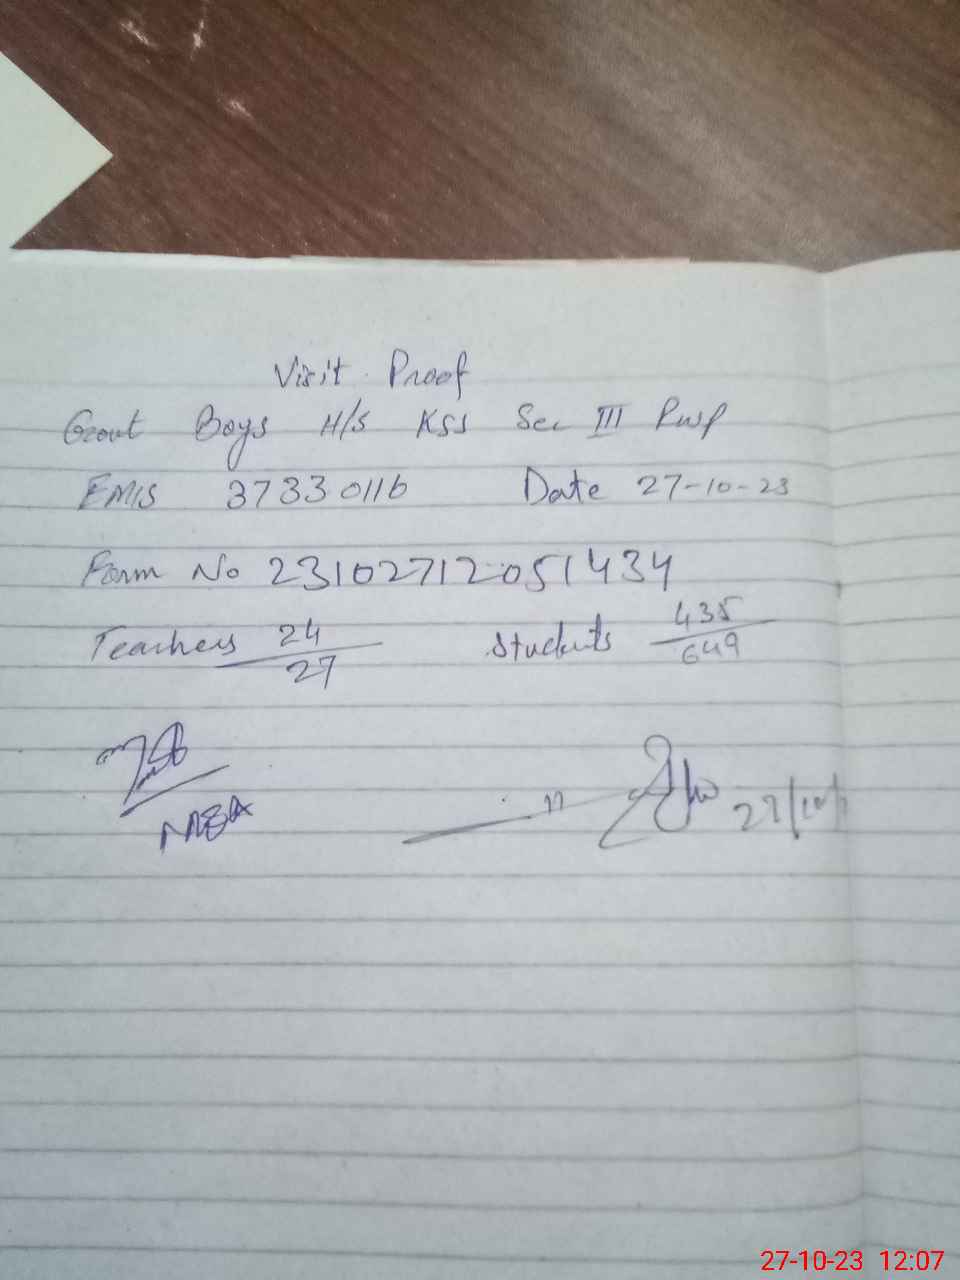 Visit Proof
Govt Boys H/S KSS Sec III Rwp
EMIS 37330116 Date 27-10-23
Form No 23102712051434
Teachers 24/27 Students 435/649
MEA
27/10/
27-10-23 12:07